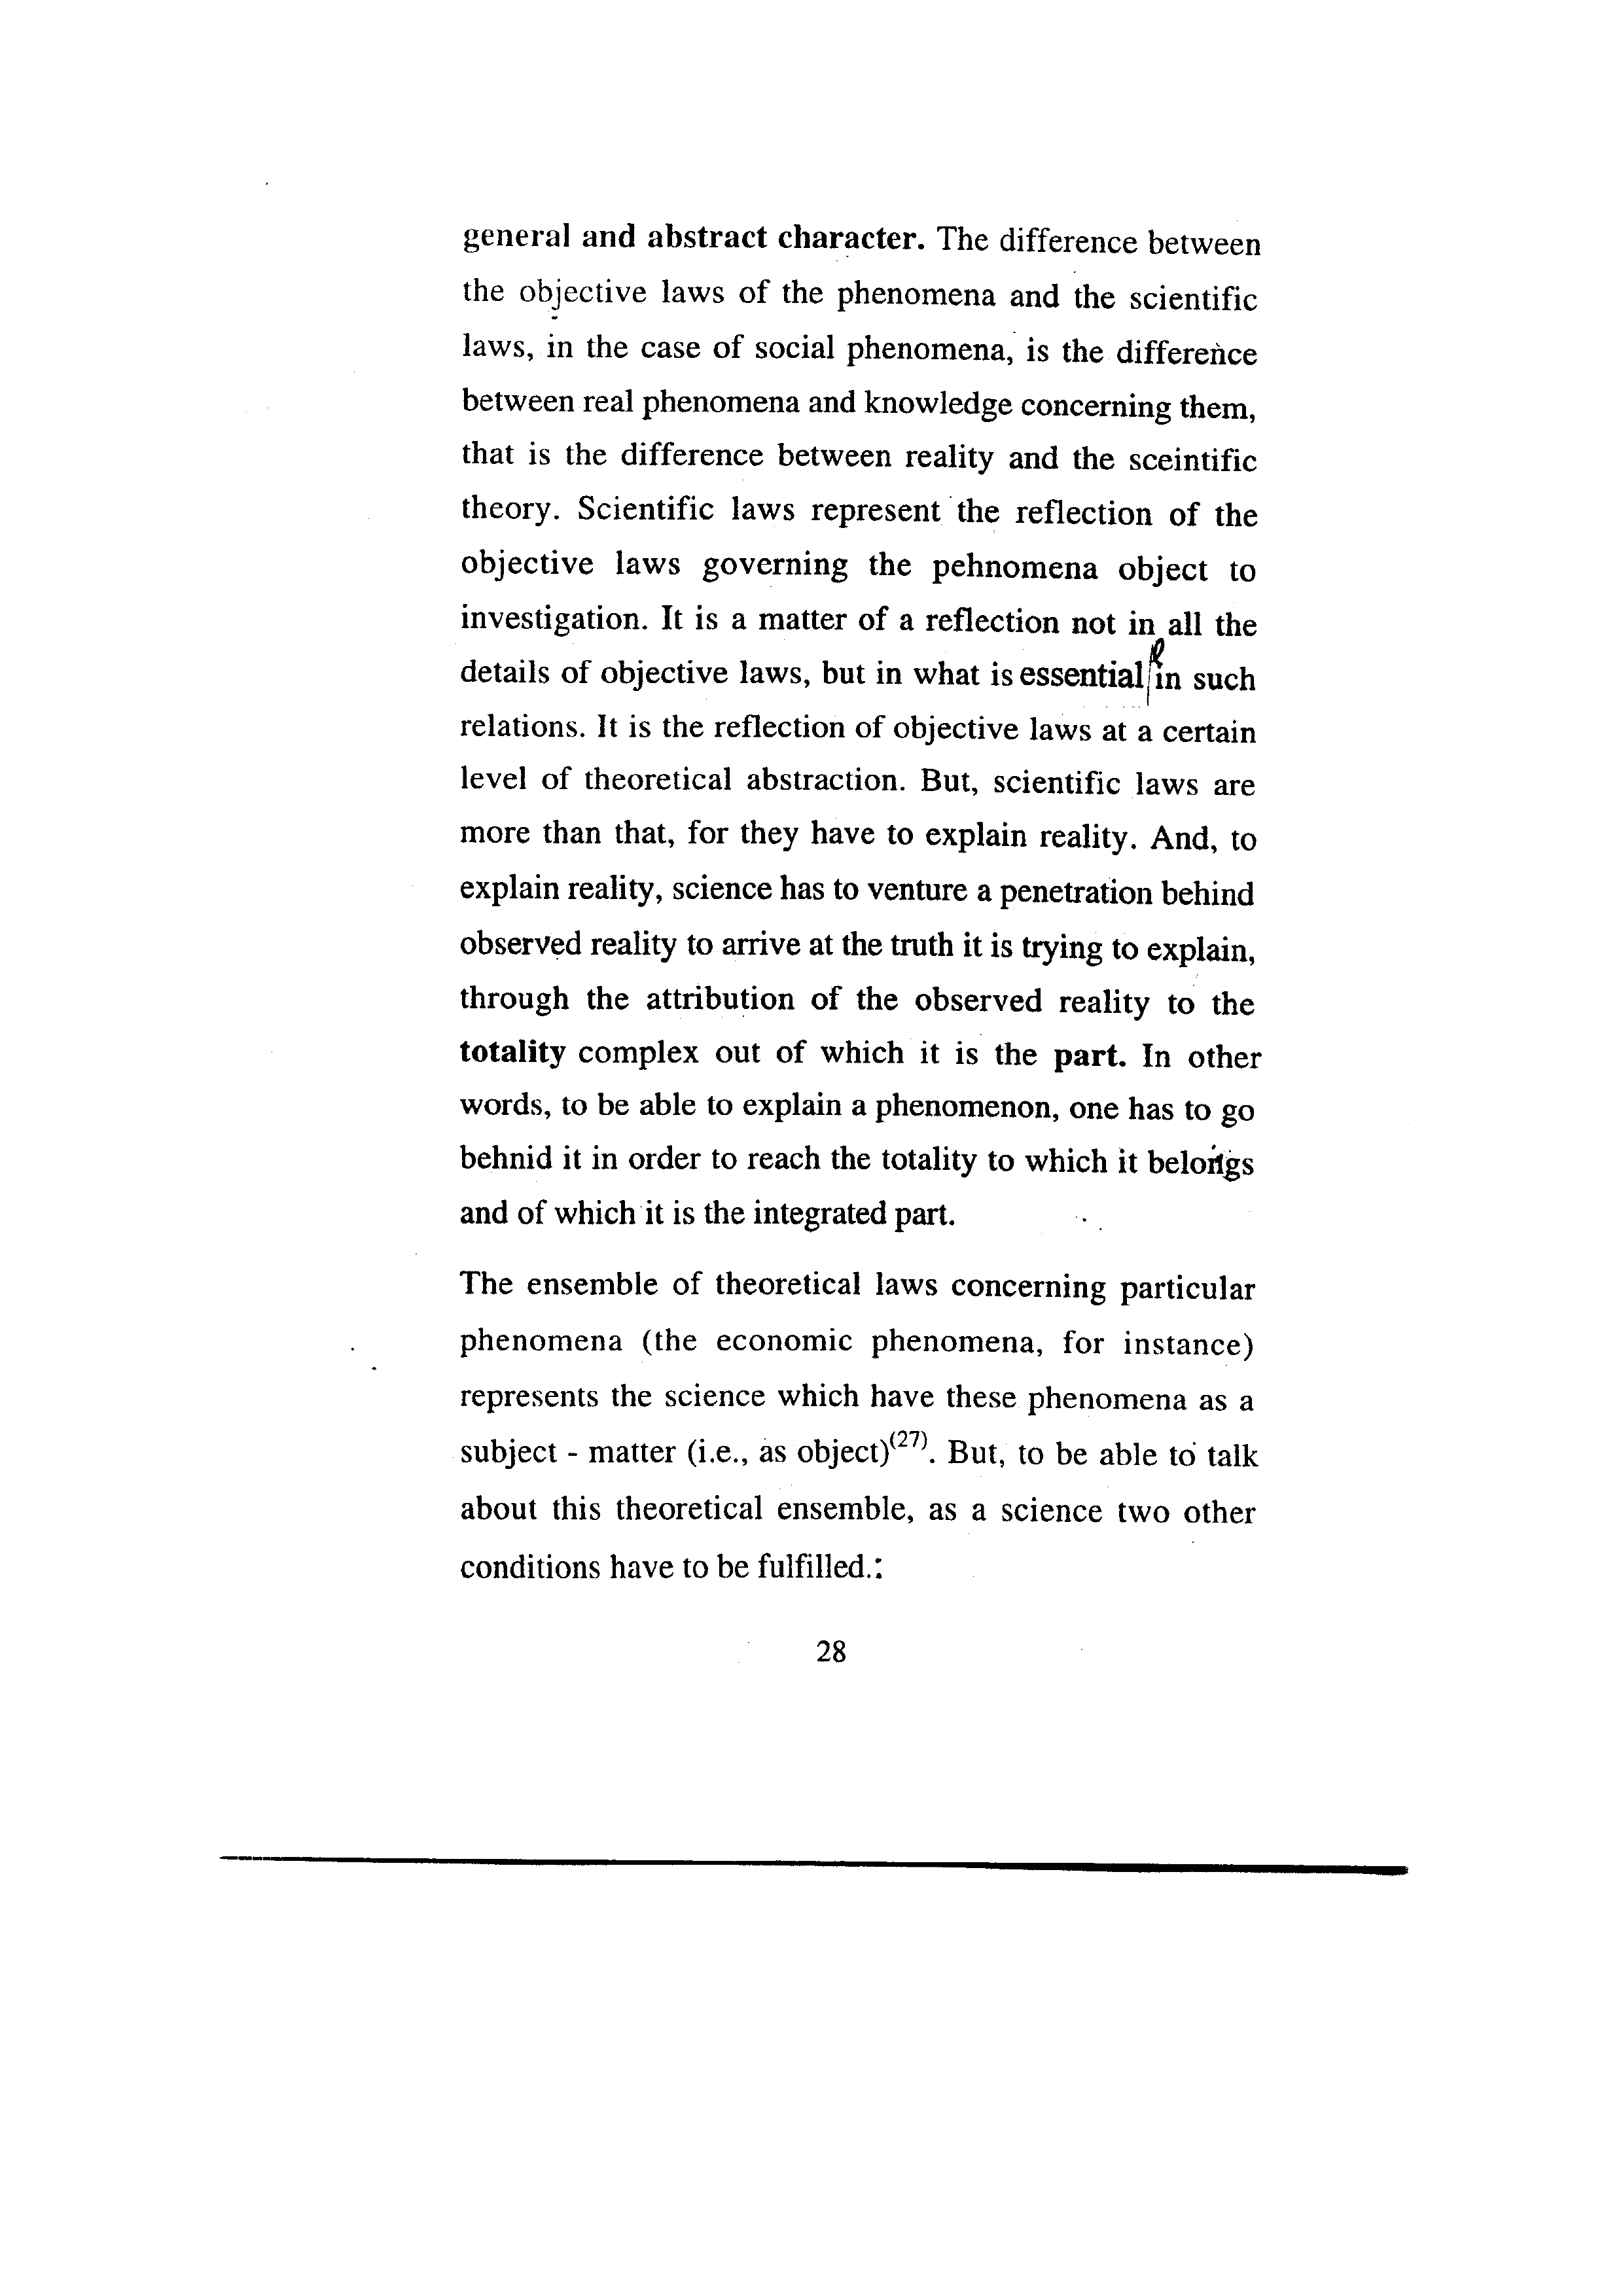 general and abstract character. The difference between
the objective laws of the phenomena and the scientific
laws, in the case of social phenomena, is the difference
between real phenomena and knowledge concerning them,
that is the difference between reality and the sceintific
theory. Scientific laws represent the reflection of the
objective laws governing the pehnomena object to
investigation. It is a matter of a reflection not in all the
details of objective laws, but in what is essential in such
relations. It is the reflection of objective laws at a certain
level of theoretical abstraction. But, scientific laws are
more than that, for they have to explain reality. And, to
explain reality, science has to venture a penetration behind
observed reality to arrive at the truth it is trying to explain,
through the attribution of the observed reality to the
totality complex out of which it is the part. In other
words, to be able to explain a phenomenon, one has to go
behnid it in order to reach the totality to which it belongs
and of which it is the integrated part.
The ensemble of theoretical laws concerning particular
phenomena (the economic phenomena, for instance)
represents the science which have these phenomena as a
subject - matter (i.e., as object)(27). But, to be able to talk
about this theoretical ensemble, as a science two other
conditions have to be fulfilled.:
28